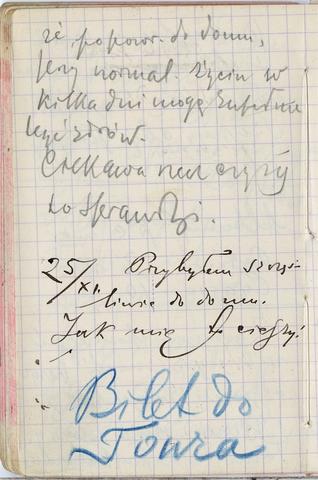 że, popowr. do domu,
przy normal. życiu w
kilka dni mogę zupełnie
być zdrów.
Ciekawa rzecz czy się
to sprawdzi.
25/XI. Przybyłem szczęś-
liwie do domu.
Jak mię to cieszy!
Bilet do